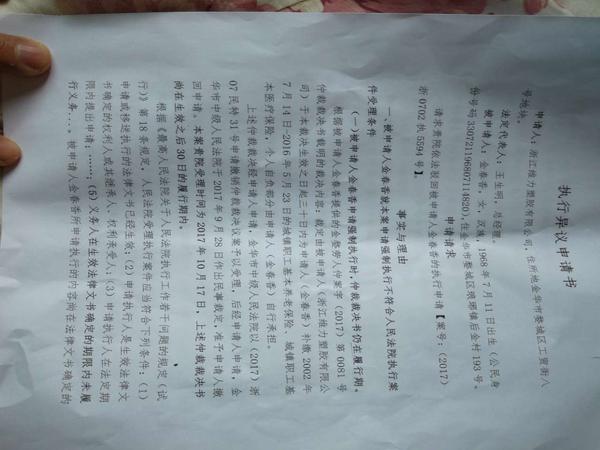 执行异议申请书
申请人：浙江维力塑胶有限公司，住所地金华市婺城区工贸街八
号地块。
法定代表人：王生明，总经理。
被申请人：金春香，女，汉族，1968年7月11日出生（公民身
份号码330721196807114820），住金华市婺城区琅琊镇后金村193号。
申请请求
请求贵院依法驳回被申请人金春香的执行申请【案号：（2017）
浙0702执5594号】。
事实与理由
一、被申请人金春香就本案申请强制执行不符合人民法院执行案
件受理条件
（一）被申请人金春香申请强制执行时，仲裁裁决书仍在履行期。
根据被申请人金春香提供的金婺劳人仲案字（2017）第0081号
仲裁裁决书载明的裁决内容：裁定由被申请人（浙江维力塑胶有限公
司）于本裁决生效之日起三十日内为申请人（金春香）补缴2002年
7月14日-2016年5月23日的城镇职工基本养老保险、城镇职工基
本医疗保险，个人自负部分由申请人（金春香）自行承担。
上述仲裁裁决经申请人申请，金华市中级人民法院以（2017）浙
07民特31号申请撤销仲裁裁决议案予以受理，后经申请人申请，金
华市中级人民法院于2017年9月28日作出民事裁定，准予申请人撤
回申请。本案贵院受理时间为2017年10月17日，上述仲裁裁决书
尚在生效之后30日的履行期内
根据《最高人民法院关于人民法院执行工作若干问题的规定（试
行）》第18条规定，人民法院受理执行案件应当符合下列条件：（1）
申请或移送执行的法律文书已经生效；（2）申请执行人是生效法律文
书确定的权利人或其继承人、权利承受人；（3）申请执行人在法定期
限内提出申请；……；（5）义务人在生效法律文书确定的期限内未履
行义务…。被申请人金春香所申请执行的内容尚在法律文书确定的